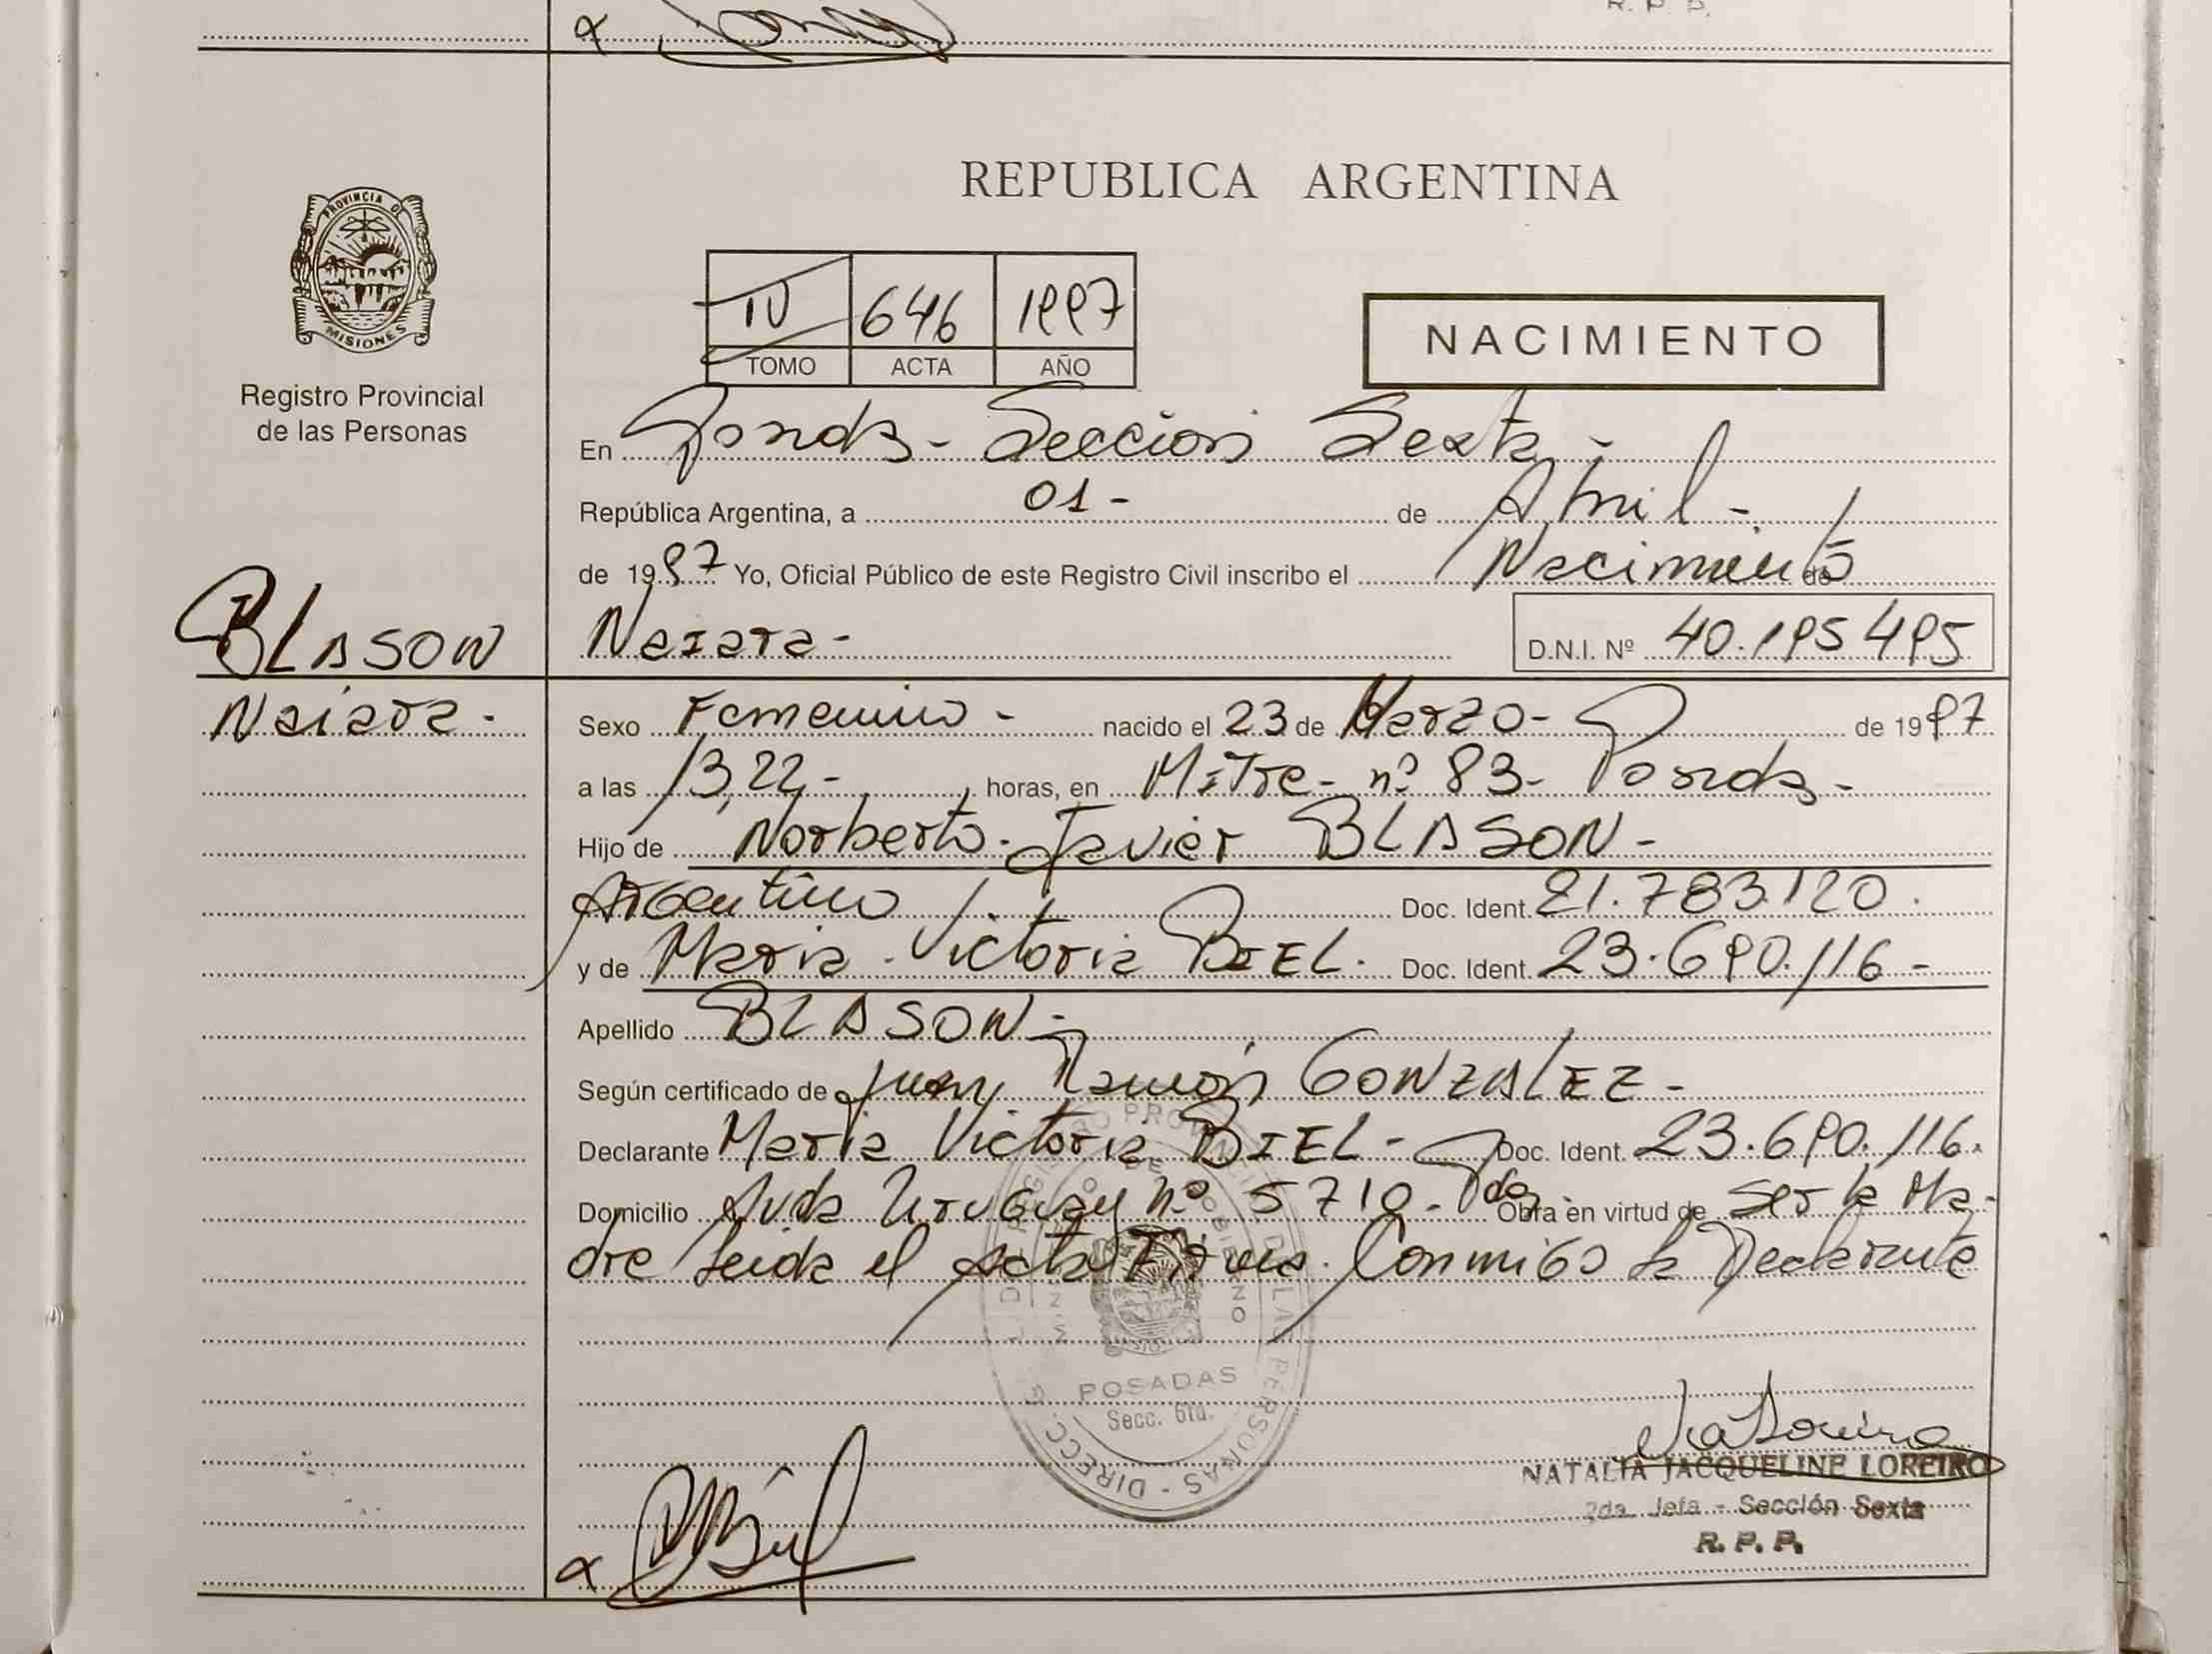 R. P. P.
PROVINCIA DE
MISIONES
Registro Provincial
de las Personas
REPUBLICA ARGENTINA
IV 646 1997
TOMO ACTA AÑO
NACIMIENTO
En Posadas - Sección Sexta -
República Argentina, a 01 - de Abril -
de 1997 Yo, Oficial Público de este Registro Civil inscribo el Nacimiento de
BLASON
Naiara -
Naiara - D.N.I. Nº 40.195.495
Sexo Femenino - nacido el 23 de Marzo - de 1997
a las 13,22 - horas, en Mitre - nº 83 - Posadas -
Hijo de Norberto Javier BLASON -
Argentino Doc. Ident. 21.783.120.
y de Maria Victoria BIEL. Doc. Ident. 23.690.116 -
Apellido BLASON -
Según certificado de Juan Ramón GONZALEZ -
Declarante Maria Victoria BIEL - Doc. Ident. 23.690.116.
Domicilio Avda Uruguay nº 5710 - Pdas - Obra en virtud de ser la Ma-
dre leida el acta Firma Conmigo la Declarante
POSADAS
Secc. 6ta.
NATALIA JACQUELINE LOREIRO
2da. Jefa - Sección Sexta
R. P. P.